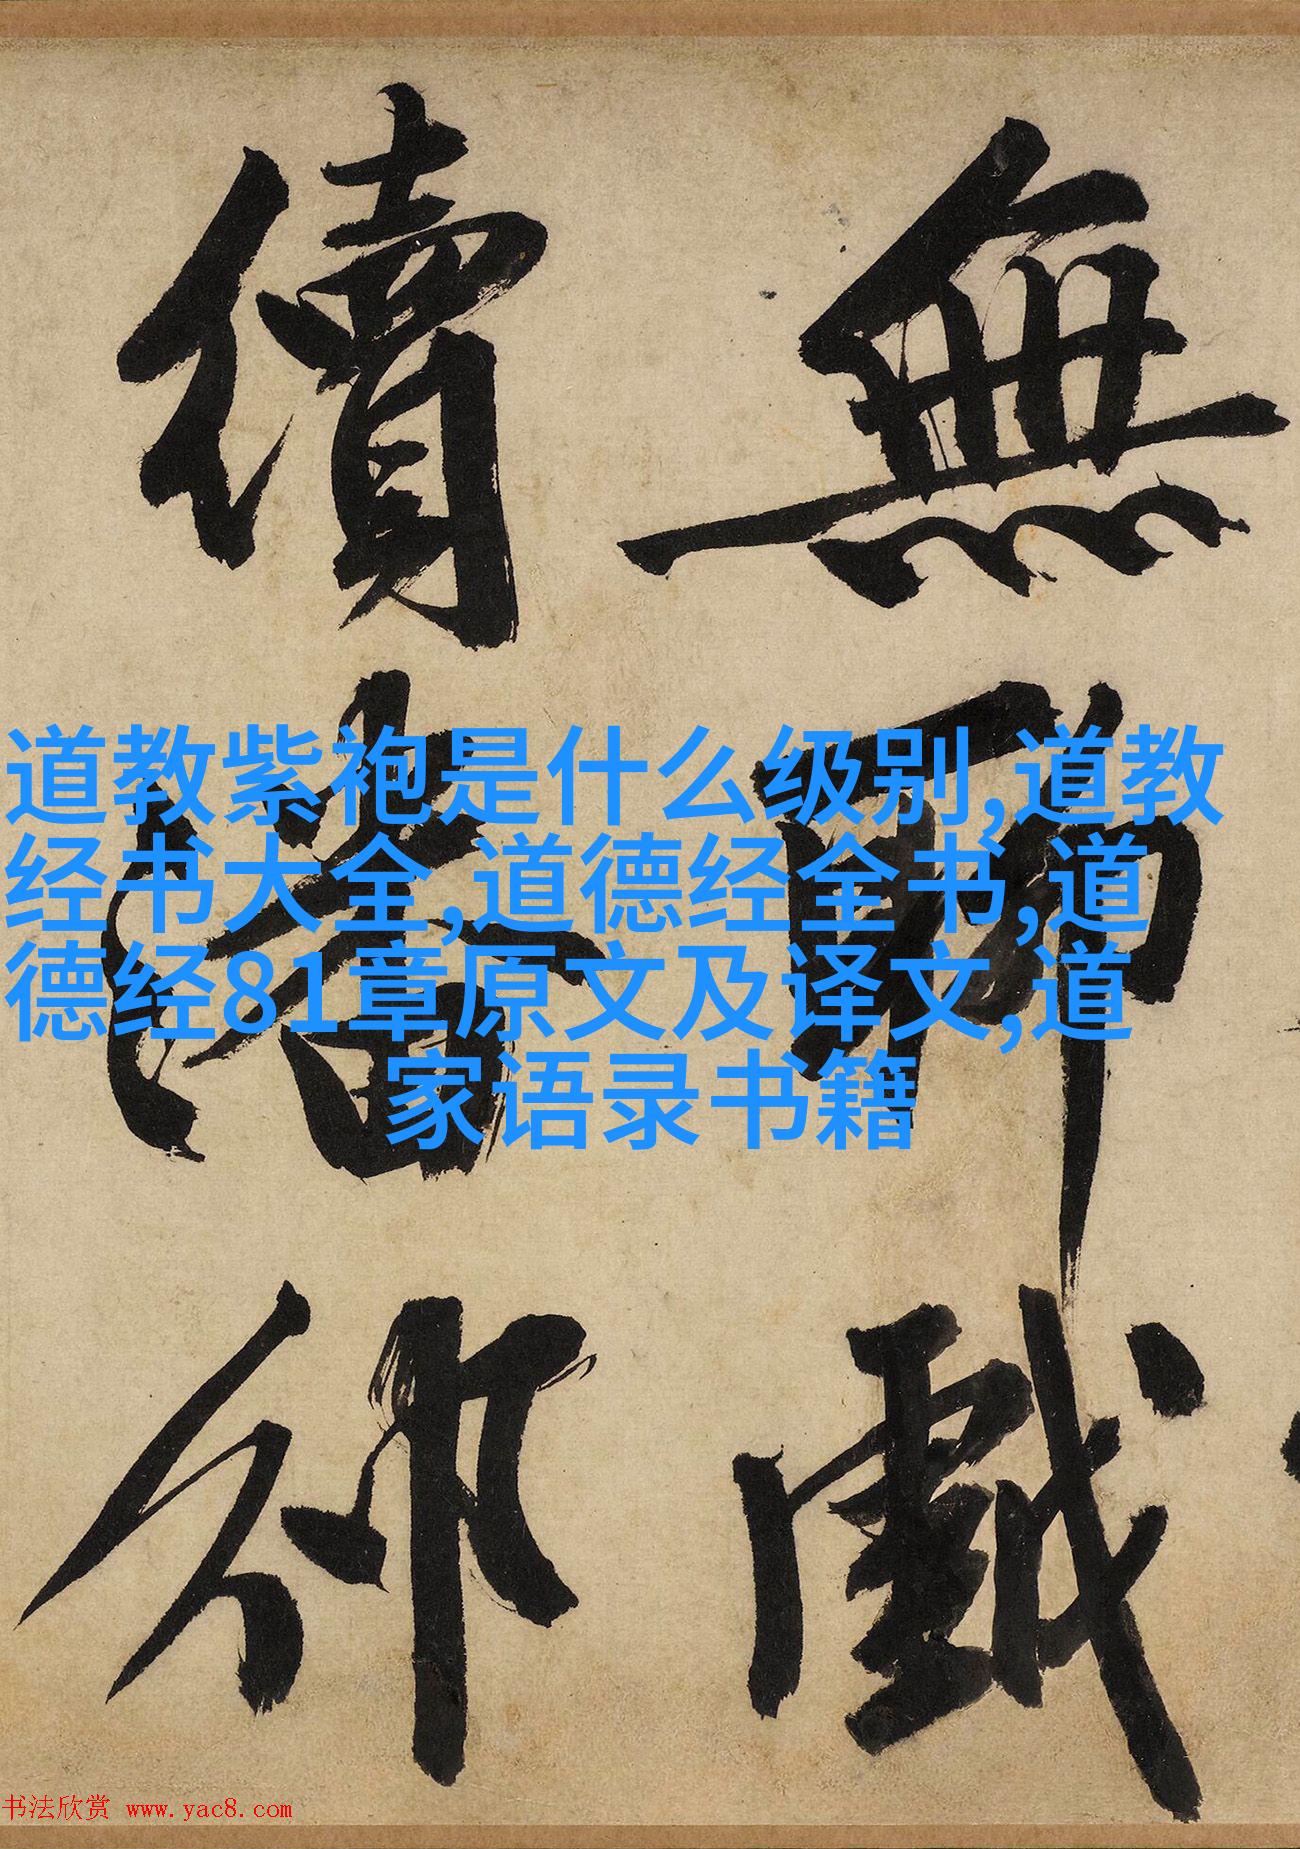 無聊戲
續潘邠
道教紫袍是什么级别,道教
经书大全,道德经全书,道
德经81章原文及译文,道
家语录书籍
书法欣赏 www.yac8.com